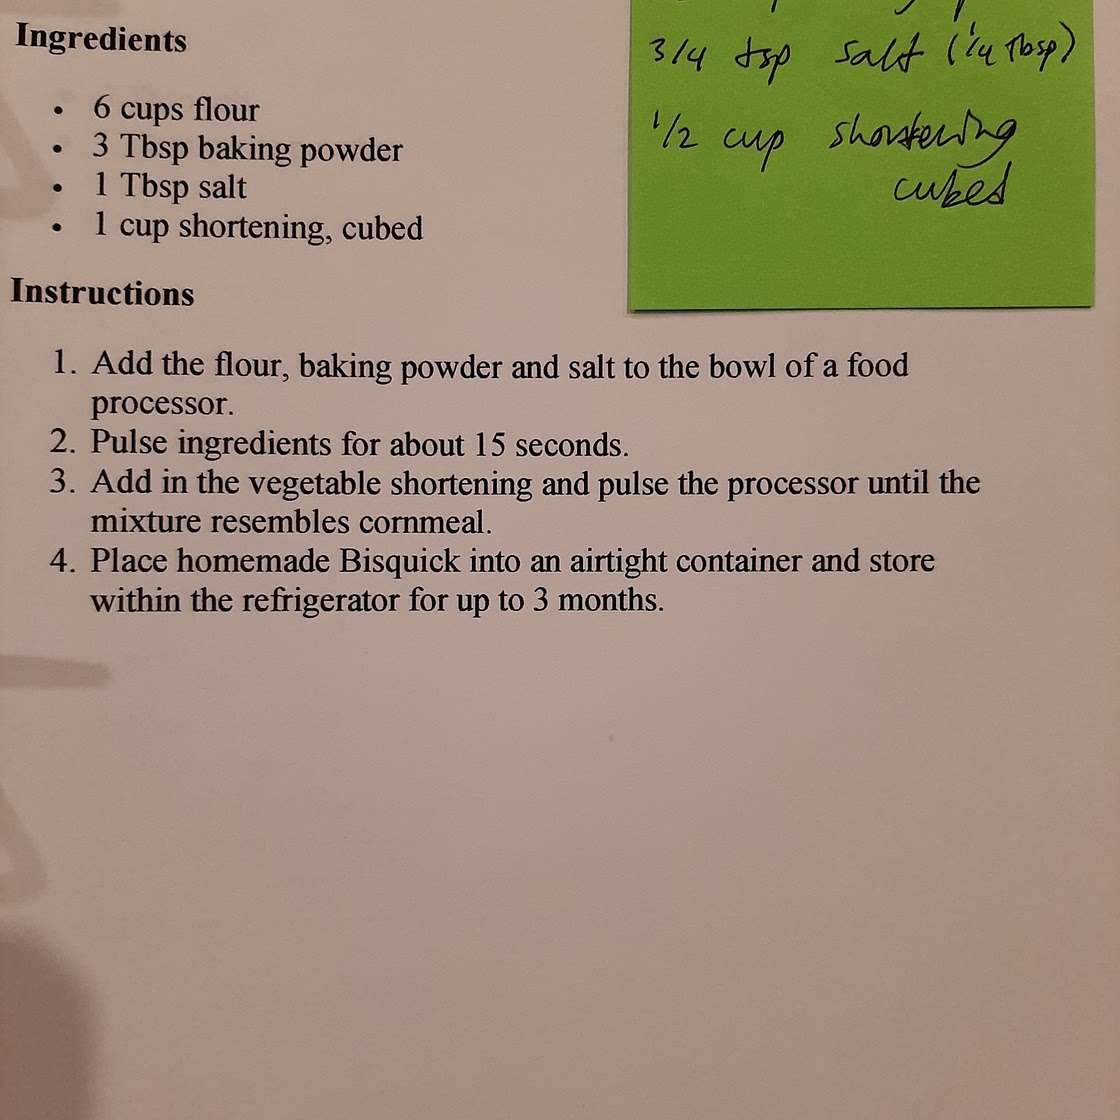 Ingredients
• 6 cups flour
• 3 Tbsp baking powder
• 1 Tbsp salt
• 1 cup shortening, cubed
Instructions
1. Add the flour, baking powder and salt to the bowl of a food
processor.
2. Pulse ingredients for about 15 seconds.
3. Add in the vegetable shortening and pulse the processor until the
mixture resembles cornmeal.
4. Place homemade Bisquick into an airtight container and store
within the refrigerator for up to 3 months.
3/4 tsp salt (1/4 Tbsp)
1/2 cup shortening
cubed